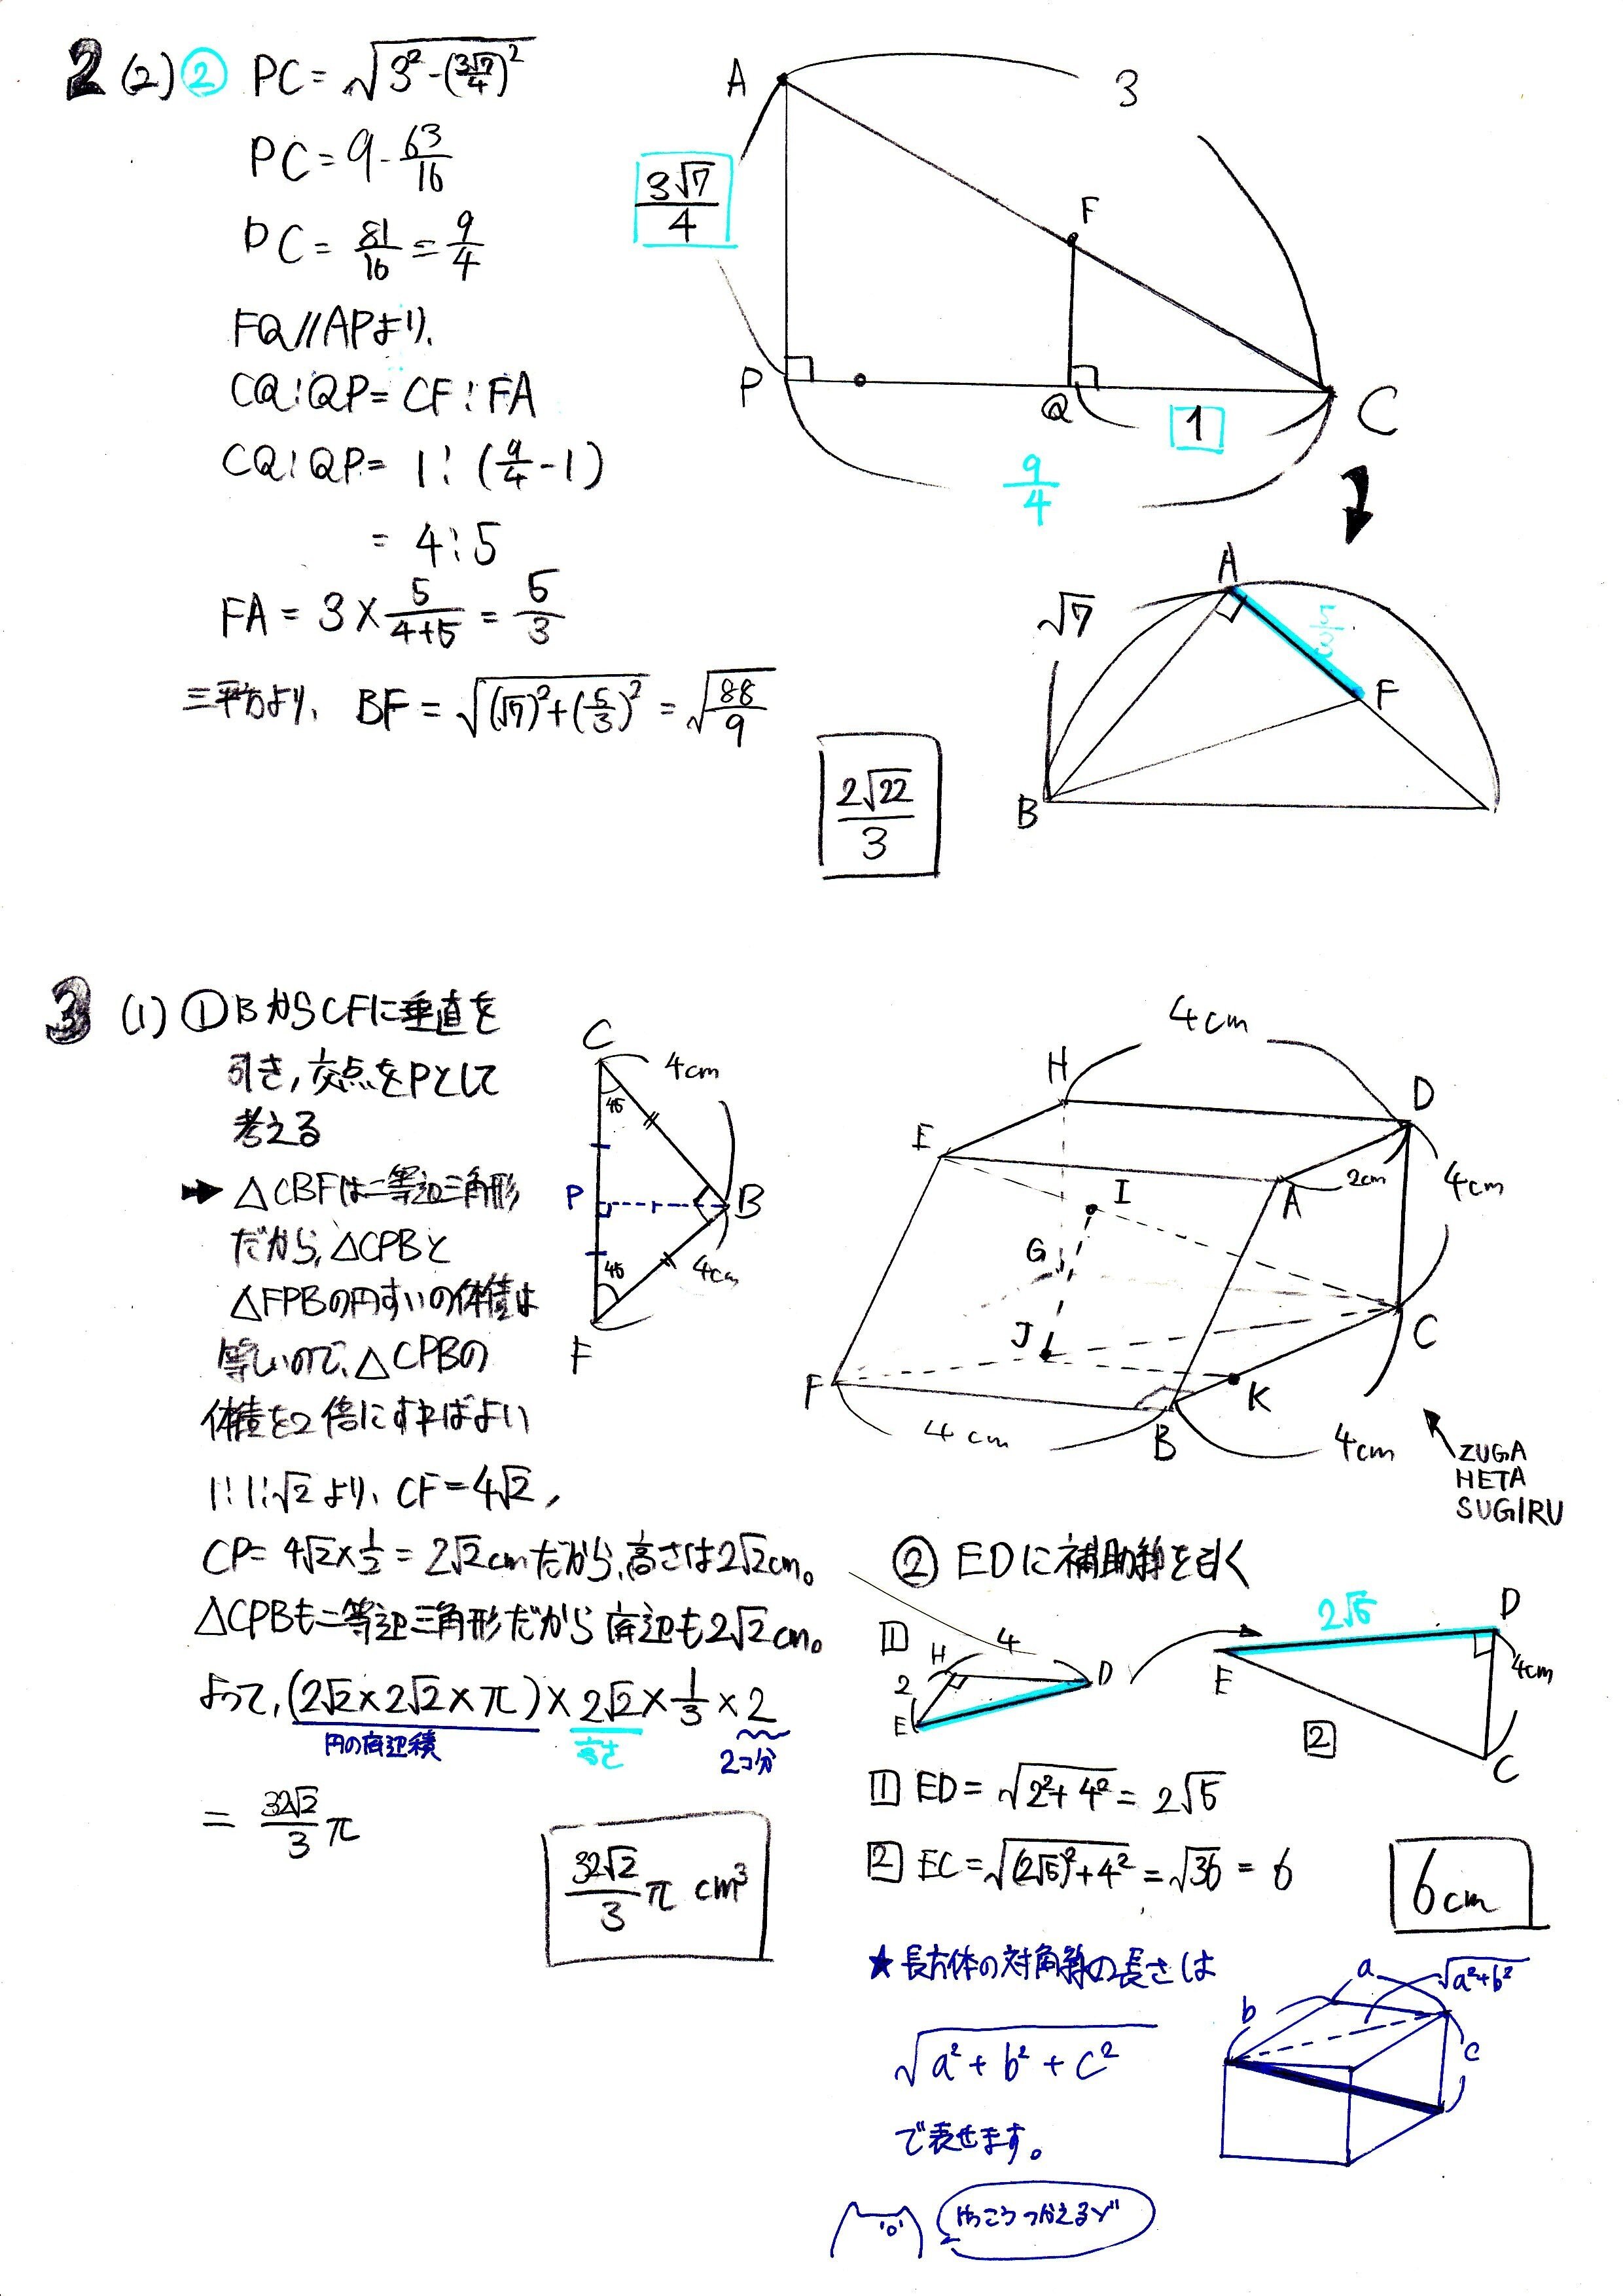 2 (2) ② PC = √(3² - (3√7/4)²)
PC = 9 - 63/16
PC = 81/16 = 9/4
FQ//APより、
CQ:QP = CF:FA
CQ:QP = 1:(9/4 - 1)
= 4:5
FA = 3 × 5/(4+5) = 5/3
三平方より、 BF = √((√7)² + (5/3)²) = √(88/9)
2√22/3
A
3
3√7/4
F
P
Q
1
C
9/4
A
√7
5/3
F
B
3 (1) ① BからCFに垂直を
引き,交点をPとして
考える
→ △CBFは二等辺三角形
だから,△CPBと
△FPBの円すいの体積は
等しいので、△CPBの
体積を2倍にすればよい
1:1:√2より、CF = 4√2,
CP = 4√2 × 1/2 = 2√2cmだから,高さは2√2cm。
△CPBも二等辺三角形だから 底辺も2√2cm。
よって, (2√2 × 2√2 × π) × 2√2 × 1/3 × 2
円の底辺積 高さ 2コ分
= 32√2/3 π
32√2/3 π cm³
C
4cm
45
P
B
45
4cm
F
4cm
H
D
E
2cm
4cm
I
A
G
J
C
F
K
4cm
B
4cm
ZUGA
HETA
SUGIRU
② EDに補助線を引く
1 H 4 D
2
E
2√5 D
E 4cm
2
C
1 ED = √(2² + 4²) = 2√5
2 EC = √((2√5)² + 4²) = √36 = 6
6cm
★ 長方体の対角線の長さは
√(a² + b² + c²)
で表せます。
a √(a²+b²)
b
c
けっこうつかえるゾ